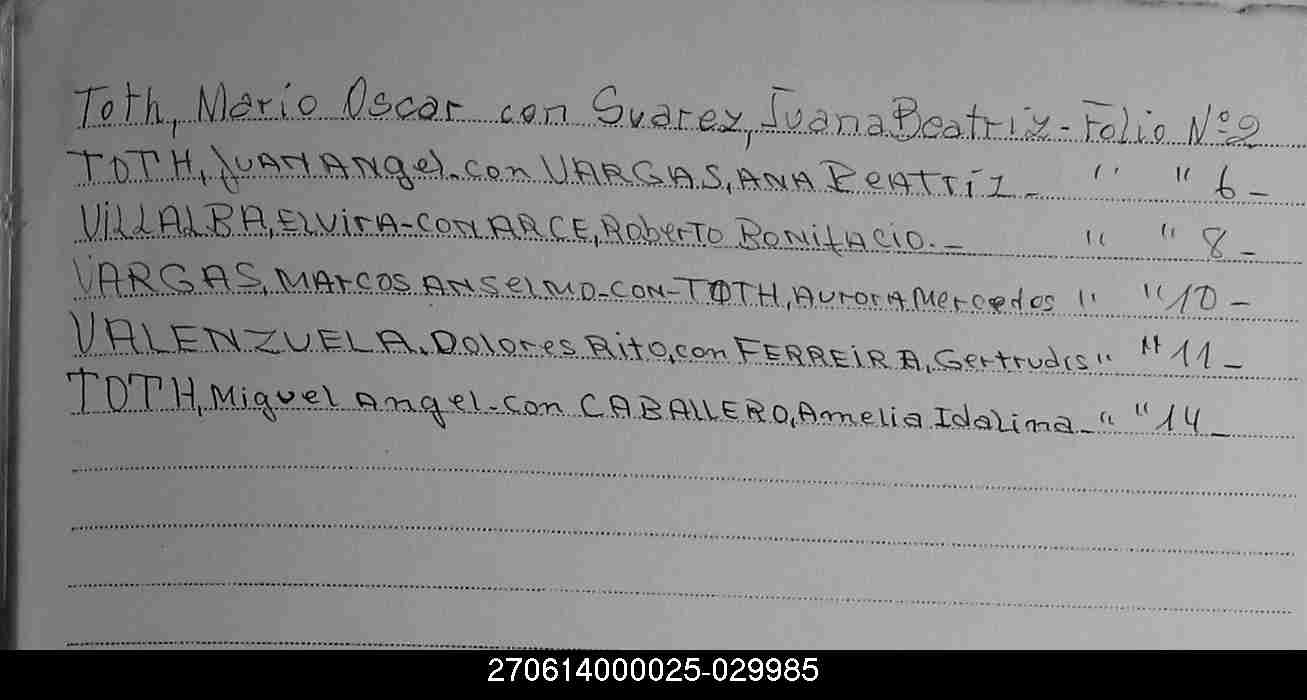 Toth, Mario Oscar con Suarez, Juana Beatriz - Folio Nº 2
TOTH, JUAN ANgel. con VARGAS, ANA BeATTIZ - " " 6 -
VILLALBA, ElVirA - CON ARCE, RoberTo BONIfACIO. - " " 8 -
VARGAS, MArcos ANSelMO - CON - TOTH, AurorA Mercedes " " 10 -
VALENZUELA, Dolores Rito, con FERREIRA, Gertrudis " " 11 -
TOTH, Miguel Angel - Con CABALLERO, Amelia Idalina - " " 14 -
270614000025-029985